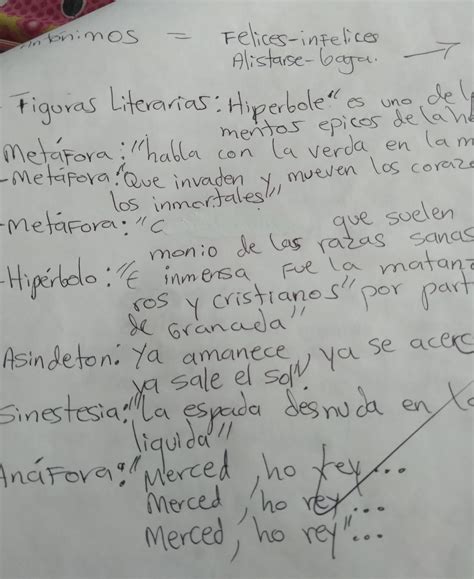 Antónimos = Felices-infelices
Alistarse-baja.
- Figuras Literarias: Hiperbole" es uno de
mentos epicos de la
Metáfora: "habla con la verda en la
- Metáfora: "Que invaden y mueven los
los inmortales"
- Metáfora: "C que suelen
monio de las razas sanas
- Hipérbolo: "E inmensa Fue la
ros y cristianos" por
de Granada"
Asindeton: Ya amanece, ya se
ya sale el sol".
Sinestesia: "La espada desnuda en
liquida"
Anáfora: "Merced, ho rey...
Merced, ho rey...
Merced, ho rey"...